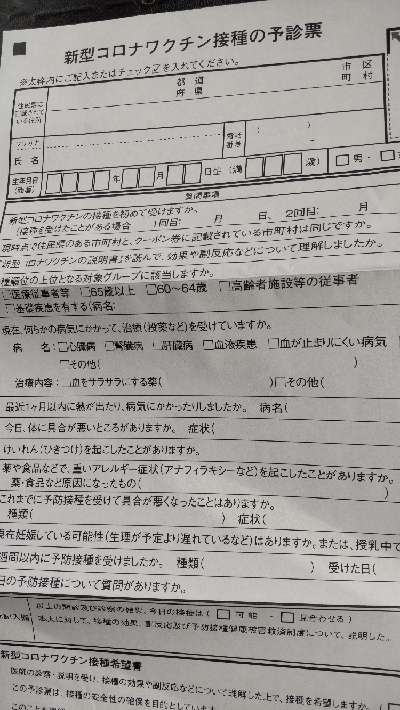 新型コロナワクチン接種の予診票
※太枠内にご記入またはチェック☑を入れてください。
住民票に
記載されて
いる住所
都 道
府 県
市 区
町 村
フリガナ
氏 名
電話
番号
( )
生年月日
(西暦)
年 月 日生 (満 歳)
□ 男・□
質問事項
新型コロナワクチンの接種を初めて受けますか。
(接種を受けたことがある場合 1回目: 月 日、2回目: 月
現時点で住民票のある市町村と、クーポン券に記載されている市町村は同じですか。
新型コロナワクチンの説明書を読んで、効果や副反応などについて理解しましたか。
接種順位の上位となる対象グループに該当しますか。
□医療従事者等 □65歳以上 □60～64歳 □高齢者施設等の従事者
□基礎疾患を有する(病名:
現在、何らかの病気にかかって、治療(投薬など)を受けていますか。
病 名:□心臓病 □腎臓病 □肝臓病 □血液疾患 □血が止まりにくい病気
□その他( )
治療内容:□血をサラサラにする薬( )□その他(
最近1ヶ月以内に熱が出たり、病気にかかったりしましたか。 病名(
今日、体に具合が悪いところがありますか。 症状(
けいれん(ひきつけ)を起こしたことがありますか。
薬や食品などで、重いアレルギー症状(アナフィラキシーなど)を起こしたことがありますか。
薬・食品など原因になったもの( )
これまでに予防接種を受けて具合が悪くなったことはありますか。
種類( ) 症状(
現在妊娠している可能性(生理が予定より遅れているなど)はありますか。または、授乳中で
週間以内に予防接種を受けましたか。 種類( ) 受けた日(
日の予防接種について質問がありますか。
以上の問診及び診察の結果、今日の接種は(□ 可能 ・ □ 見合わせる)
本人に対して、接種の効果、副反応及び予防接種健康被害救済制度について、説明した。
新型コロナワクチン接種希望書
医師の診察・説明を受け、接種の効果や副反応などについて理解した上で、接種を希望しますか。(
この予診票は、接種の安全性の確保を目的としています。